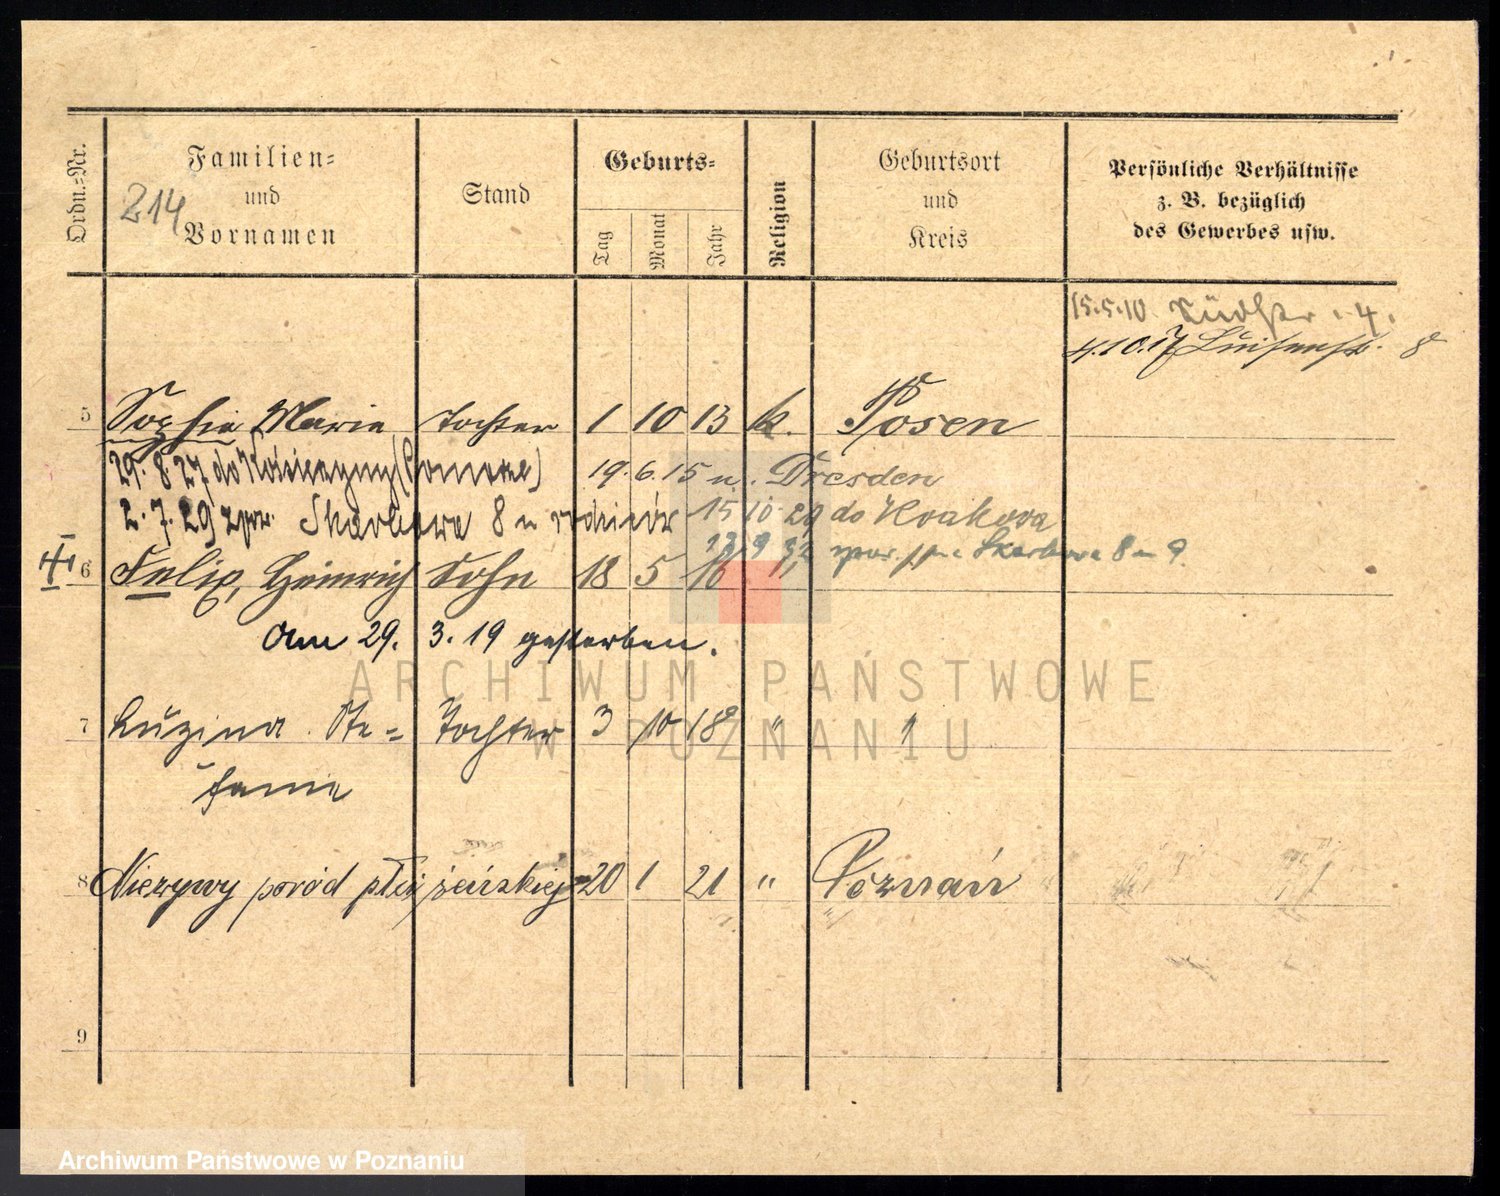 Ordn.-Nr.
Familien- und Vornamen
214
Stand
Geburts-
Tag Monat Jahr
Religion
Geburtsort und Kreis
Persönliche Verhältnisse
z. B. bezüglich
des Gewerbes usw.
15.5.10. Südstr. 4.
4.10.17 Luisenstr. 8
5 Sophie Marie Tochter 1 10 13 k. Posen
29. 8. 27 do
19. 6. 15 n. Dresden
2. 7. 29 zpr. Skarbowa 8 u rodziców
15 10 29 do Krakowa
13 9 32 Skarbowa 8 m 9.
6 Felix, Heinrich Sohn 18 5 16
Am 29. 3. 19 gestorben.
7 Luzina Ste- Tochter 3 10 18 "
fanie
8 Nieżywy poród płci żeńskiej 20 1 21 " Poznań
9
ARCHIWUM PAŃSTWOWE
W POZNANIU
Archiwum Państwowe w Poznaniu